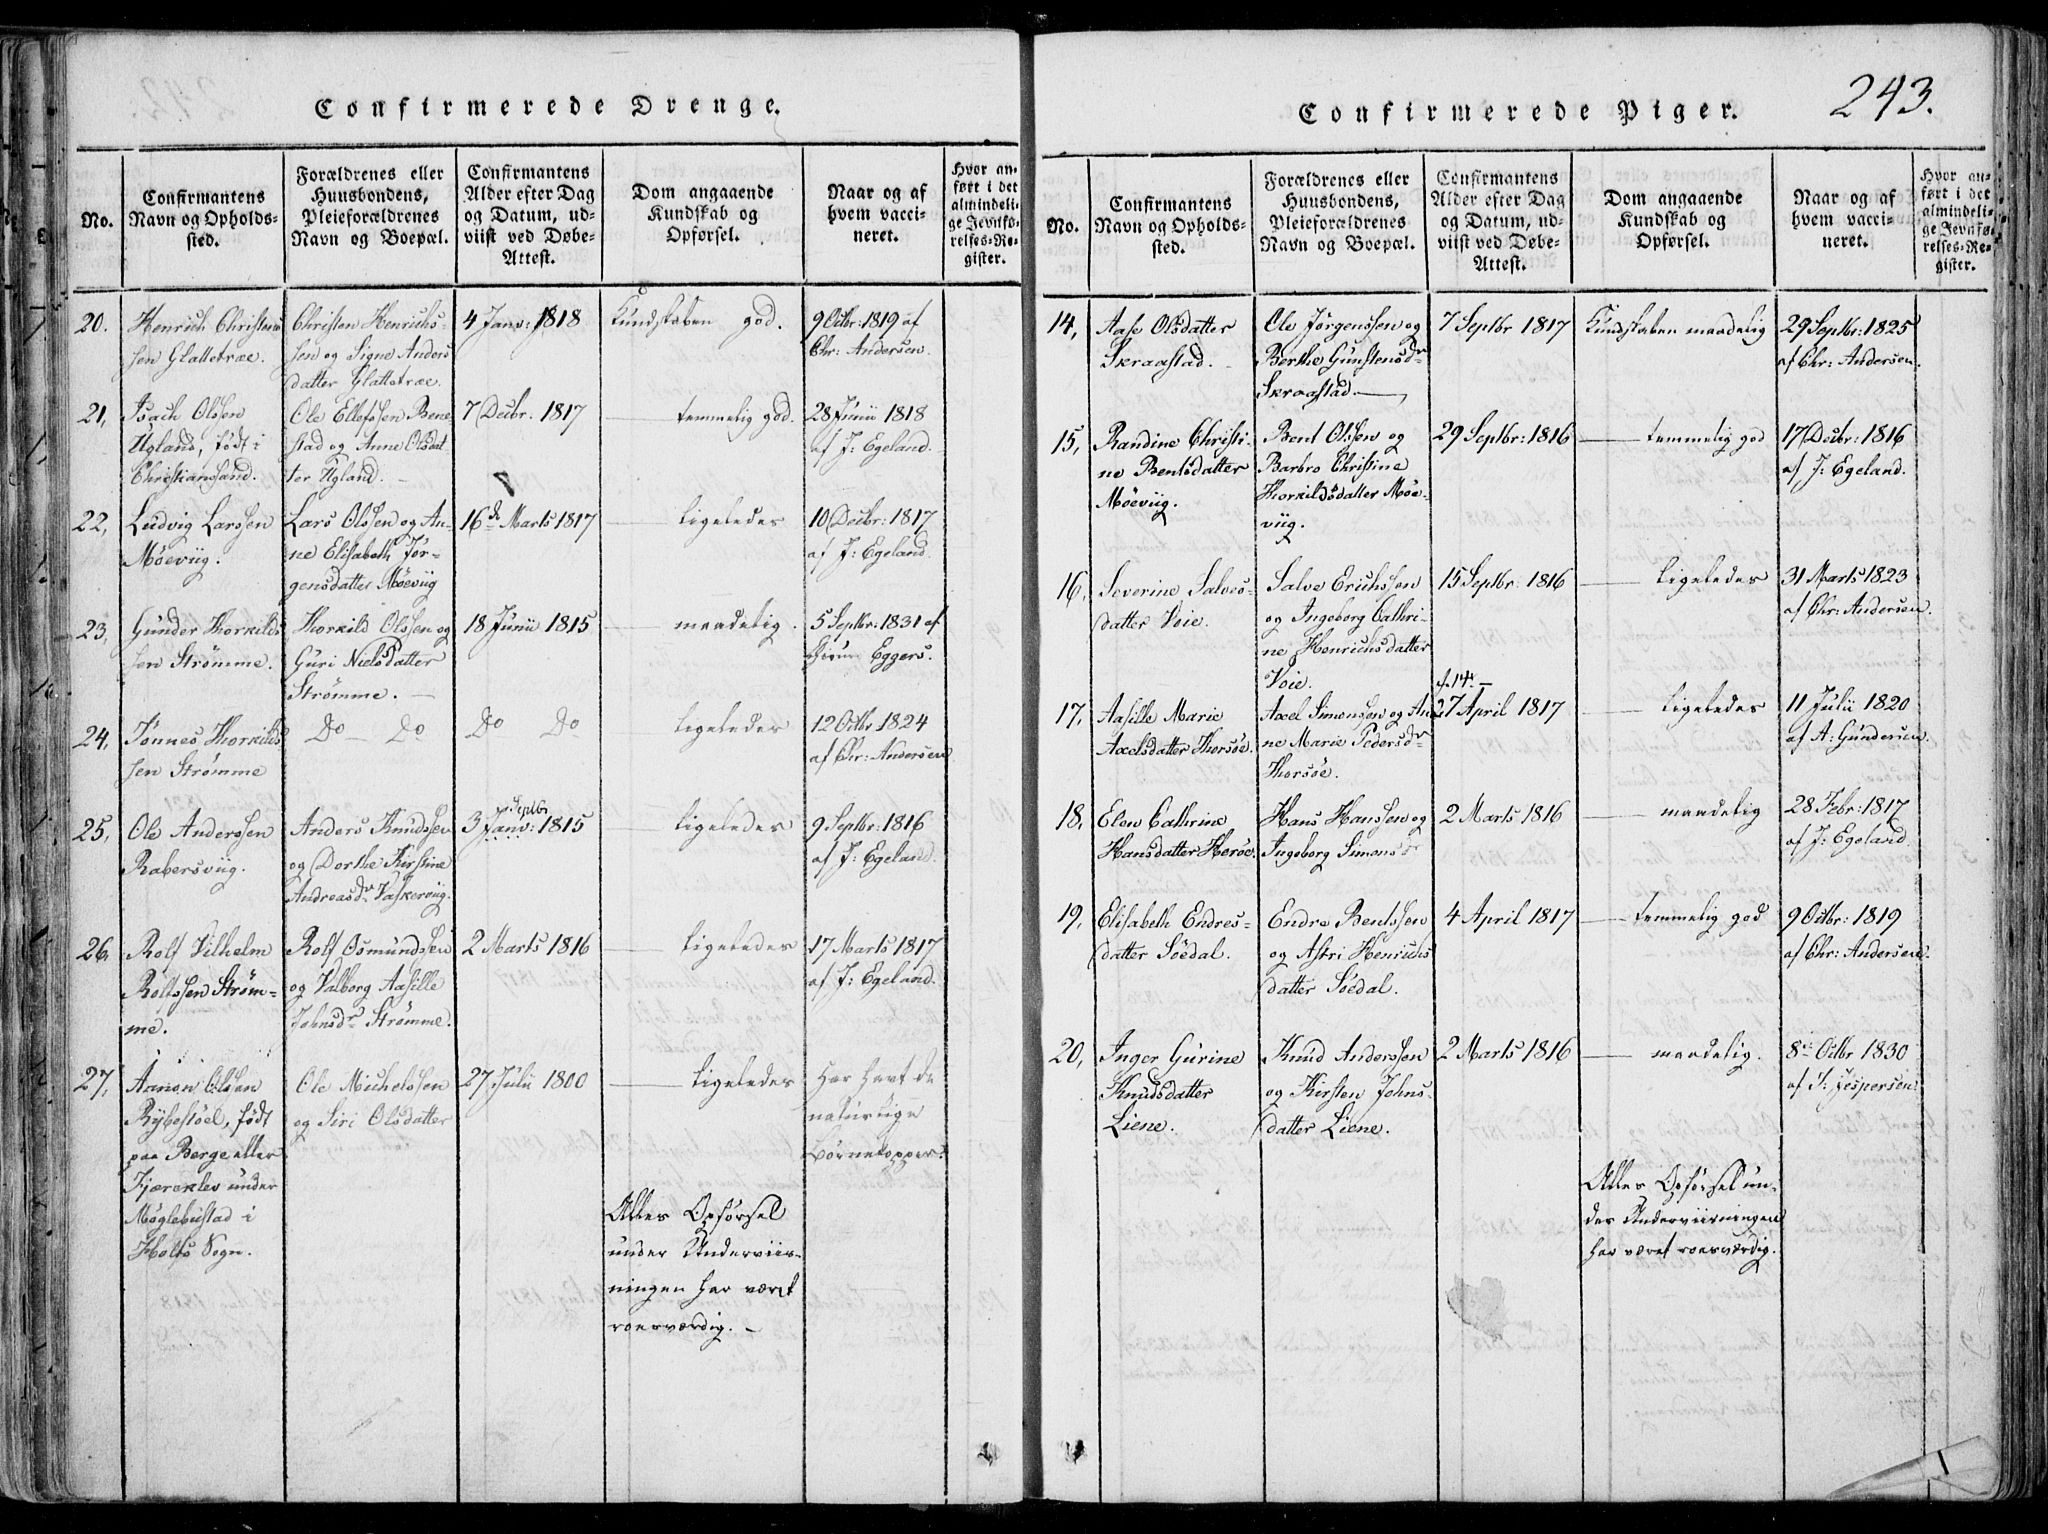 Confirmerede Drenge.
No.
Confirmantens
Navn og Opholds-
sted.
Forældrenes eller
Huusbondens,
Pleieforældrenes
Navn og Boepæl.
Confirmantens
Alder efter Dag
og Datum, ud-
viist ved Døbe-
Attest.
Dom angaaende
Kundskab og
Opførsel.
Naar og af
hvem vacci-
neret.
Hvor an-
ført i det
almindeli-
ge Jevnfø-
relses-Re-
gister.
20.
Henrich Christen-
sen Glattetræ.
Christen Henrichs-
sen og Signe Anders
datter Glattetræ.
4 Janv: 1818
Kundskaben god.
9 Octbr: 1819 af
Chr: Andersen.
21,
Isach Olssen
Ugland, født i
Christianssand.
Ole Ellefssen Bene
stad og Anne Olsdat
ter Ugland. -
7 Decbr. 1817
temmelig god.
28 Junii 1818
af J: Egeland.
22,
Ludvig Larssen
Møeviig.
Lars Olssen og An-
ne Elisabeth Jør-
gensdatter Møeviig
16de Marts 1817
ligeledes
10 Decbr: 1817
af J: Egeland.
23,
Gunder Thorkilds
sen Strømme.
Thorkild Olssen og
Guri Nielsdatter
Strømme. -
18 Junii 1815
maadelig.
5 Septbr: 1831 af
Eggers.
24,
Tønnes Thorkilds
sen Strømme
Do - Do
Do Do
ligeledes
12 Octbr 1824
af Chr: Andersen
25,
Ole Anderssen
Rabersviig.
Anders Knudssen
og Dorthe Kirstine
Andreasdr Vaskerviig.
Septbr
3 Janv: 1815
ligeledes
9 Septbr: 1816
af J: Egeland.
26,
Rolf Vilhelm
Rolfssen Strøm-
me.
Rolf Osmundssen
og Valborg Aasille
Johnsdr Strømme.
2 Marts 1816
ligeledes
17 Marts 1817
af J: Egeland.
27,
Aanon Olssen
Rybestøel, født
paa Berge eller
Fjæreklev under
Møglebustad i
Holts Sogn.
Ole Michelssen
og Siri Olsdatter
27 Julii 1800
ligeledes
Har havt de
naturlige
Børnekopper.
Alles Opførsel
under Underviis-
ningen har været
roesværdig. -
243.
Confirmerede Piger.
No.
Confirmantens
Navn og Opholds-
sted.
Forældrenes eller
Huusbondens,
Pleieforældrenes
Navn og Boepæl.
Confirmantens
Alder efter Dag
og Datum, ud-
viist ved Døbe-
Attest.
Dom angaaende
Kundskab og
Opførsel.
Naar og af
hvem vacci-
neret.
Hvor an-
ført i det
almindeli-
ge Jevnfø-
relses-Re-
gister.
14,
Aase Olsdatter
Skraastad.
Ole Jørgenssen og
Berthe Gunstensdr
Skraastad.
7 Septbr 1817
Kundskaben maadelig
29 Septbr: 1825
af Chr: Andersen.
15,
Randine Christi-
ne Bentsdatter
Møeviig.
Bent Olssen og
Barbro Christine
Thorkildsdatter Møe-
viig.
29 Septbr: 1816
temmelig god
17 Decbr: 1816
af J: Egeland.
16,
Severine Salves-
datter Voie.
Salve Erichssen
og Ingeborg Cathri-
ne Henrichsdatter
Voie.
15 Septbr: 1816
ligeledes
31 Marts 1823
af Chr: Andersen.
17,
Aasille Marie
Axelsdatter Thorsøe.
Axel Simonssen og An
ne Marie Pedersdr
Thorsøe.
27 April 1817
ligeledes
11 Julii 1820
af A: Gundersen.
18,
Elen Cathrine
Hansdatter Herøe.
Hans Hanssen og
Ingeborg Simonsdr
2 Marts 1816
maadelig
28 Febr: 1817
af J: Egeland.
19,
Elisabeth Endres-
datter Søedal.
Endre Bentssen
og Astri Henrichs
datter Søedal.
4 April 1817
temmelig god
9 Octbr: 1819
af Chr: Andersen.
20,
Inger Gurine
Knudsdatter
Liene.
Knud Anderssen
og Kirsten Johns-
datter Liene.
2 Marts 1816
maadelig.
8de Octbr 1830
af Jespersen.
Alles Opførsel un-
der Underviisningen
har været roesværdig.
1